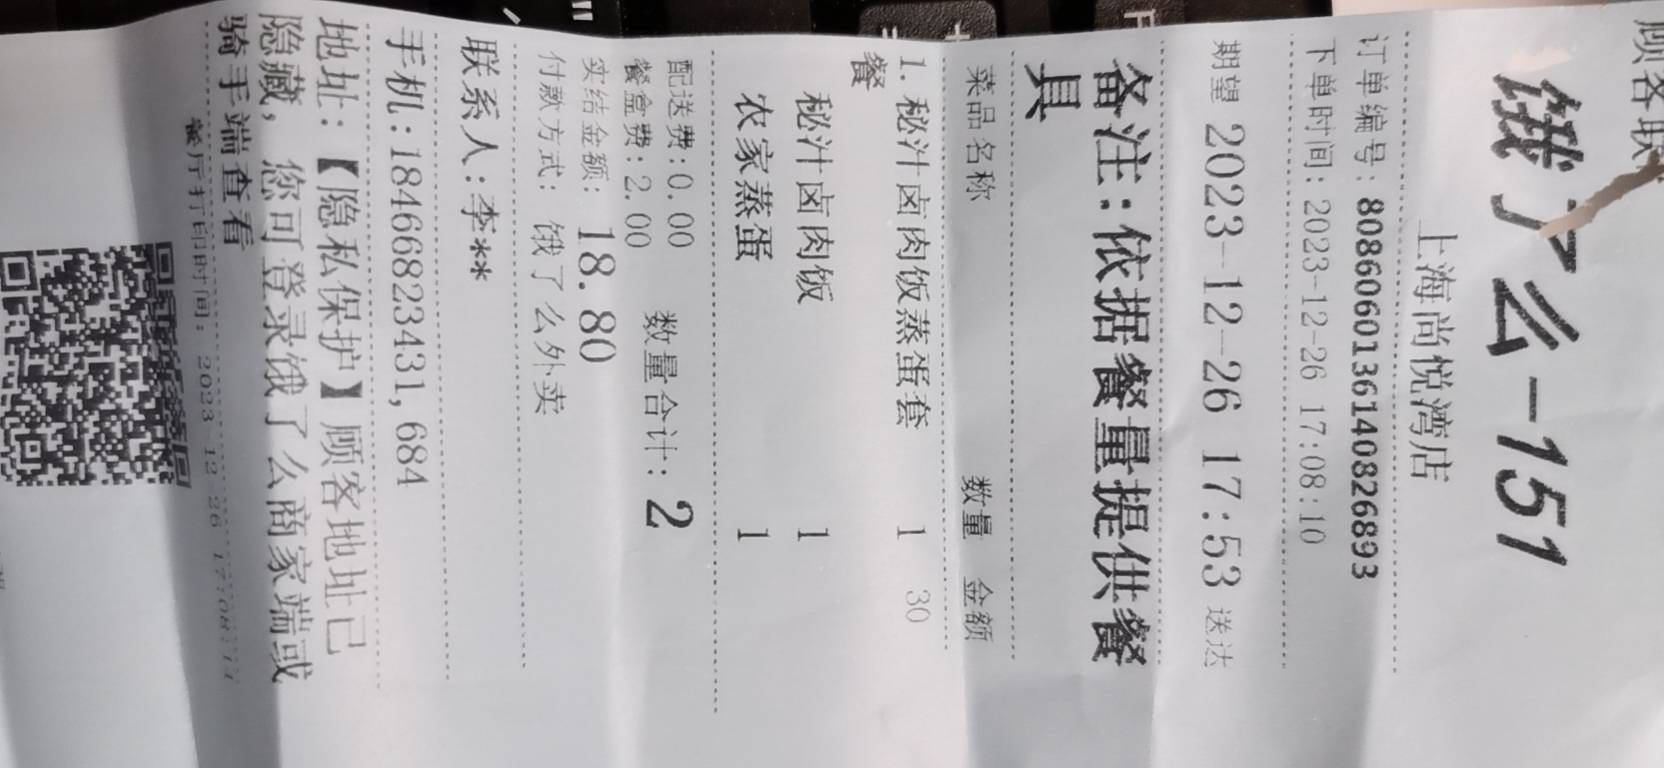 顾客联
饿了么-151
上海尚悦湾店
订单编号: 8086060136140826893
下单时间: 2023-12-26 17:08:10
期望 2023-12-26 17:53 送达
备注:依据餐量提供餐
具
菜品名称 数量 金额
1. 秘汁卤肉饭蒸蛋套 1 30
餐
秘汁卤肉饭 1
农家蒸蛋 1
配送费:0.00
餐盒费:2.00 数量合计: 2
实结金额: 18.80
付款方式: 饿了么外卖
联系人:李**
手机:18466823431,684
地址:【隐私保护】顾客地址已
隐藏, 您可登录饿了么商家端或
骑手端查看
餐厅打印时间: 2023-12-26 17:08:11